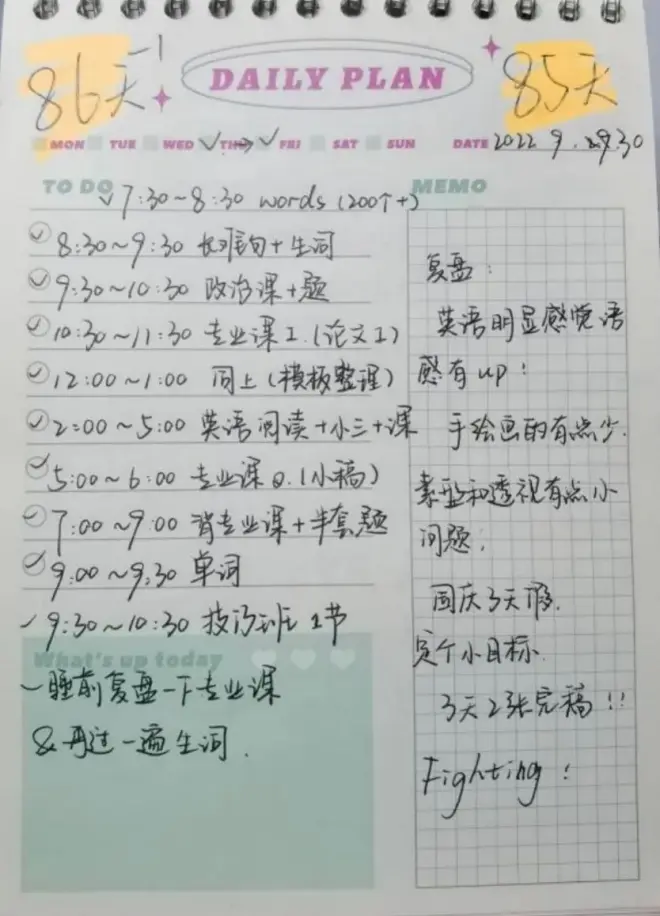 86天-1
DAILY PLAN
85天
MON TUE WED THU FRI SAT SUN DATE 2022.9.29.30
TO DO
7:30~8:30 words (200个+)
8:30~9:30 长难句+生词
9:30~10:30 政治课+题
10:30~11:30 专业课I.(论文I)
12:00~1:00 同上(模板整理)
2:00~5:00 英语阅读+小三+课
5:00~6:00 专业课②.(小稿)
7:00~9:00 背专业课+半套题
9:00~9:30 单词
9:30~10:30 技巧班1节
What's up today
睡前复盘一下专业课
&再过一遍生词.
MEMO
复盘:
英语明显感觉语
感有up!
手绘画的有点少.
素型和透视有点小
问题;
国庆3天假.
定个小目标
3天2张完稿!!
Fighting!